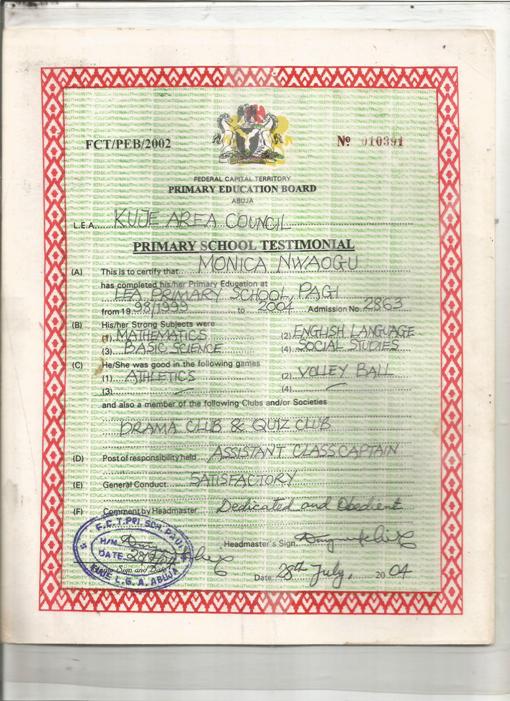 FCT/PEB/2002
No 010391
FEDERAL CAPITAL TERRITORY
PRIMARY EDUCATION BOARD
ABUJA
L.E.A. KUJE AREA COUNCIL
PRIMARY SCHOOL TESTIMONIAL
(A) This is to certify that MONICA NWAOGU
has completed his/her Primary Education at
LEA PRIMARY SCHOOL, PAGI
from 19 98/1999 to 2004 Admission No. 2863
(B) His/her Strong Subjects were
(1) MATHEMATICS (2) ENGLISH LANGUAGE
(3) BASIC SCIENCE (4) SOCIAL STUDIES
(C) He/She was good in the following games
(1) ATHLETICS (2) VOLLEY BALL
(3) (4)
and also a member of the following Clubs and/or Societies
DRAMA CLUB & QUIZ CLUB
(D) Post of responsibility held ASSISTANT CLASS CAPTAIN
(E) General Conduct SATISFACTORY
(F) Comment by Headmaster Dedicated and Obedient
Headmaster's Sign
Date 28th July, 20 04
F.C.T. PRI. SCH. PAGI
H/M
DATE
KUJE L.G.A. ABUJA